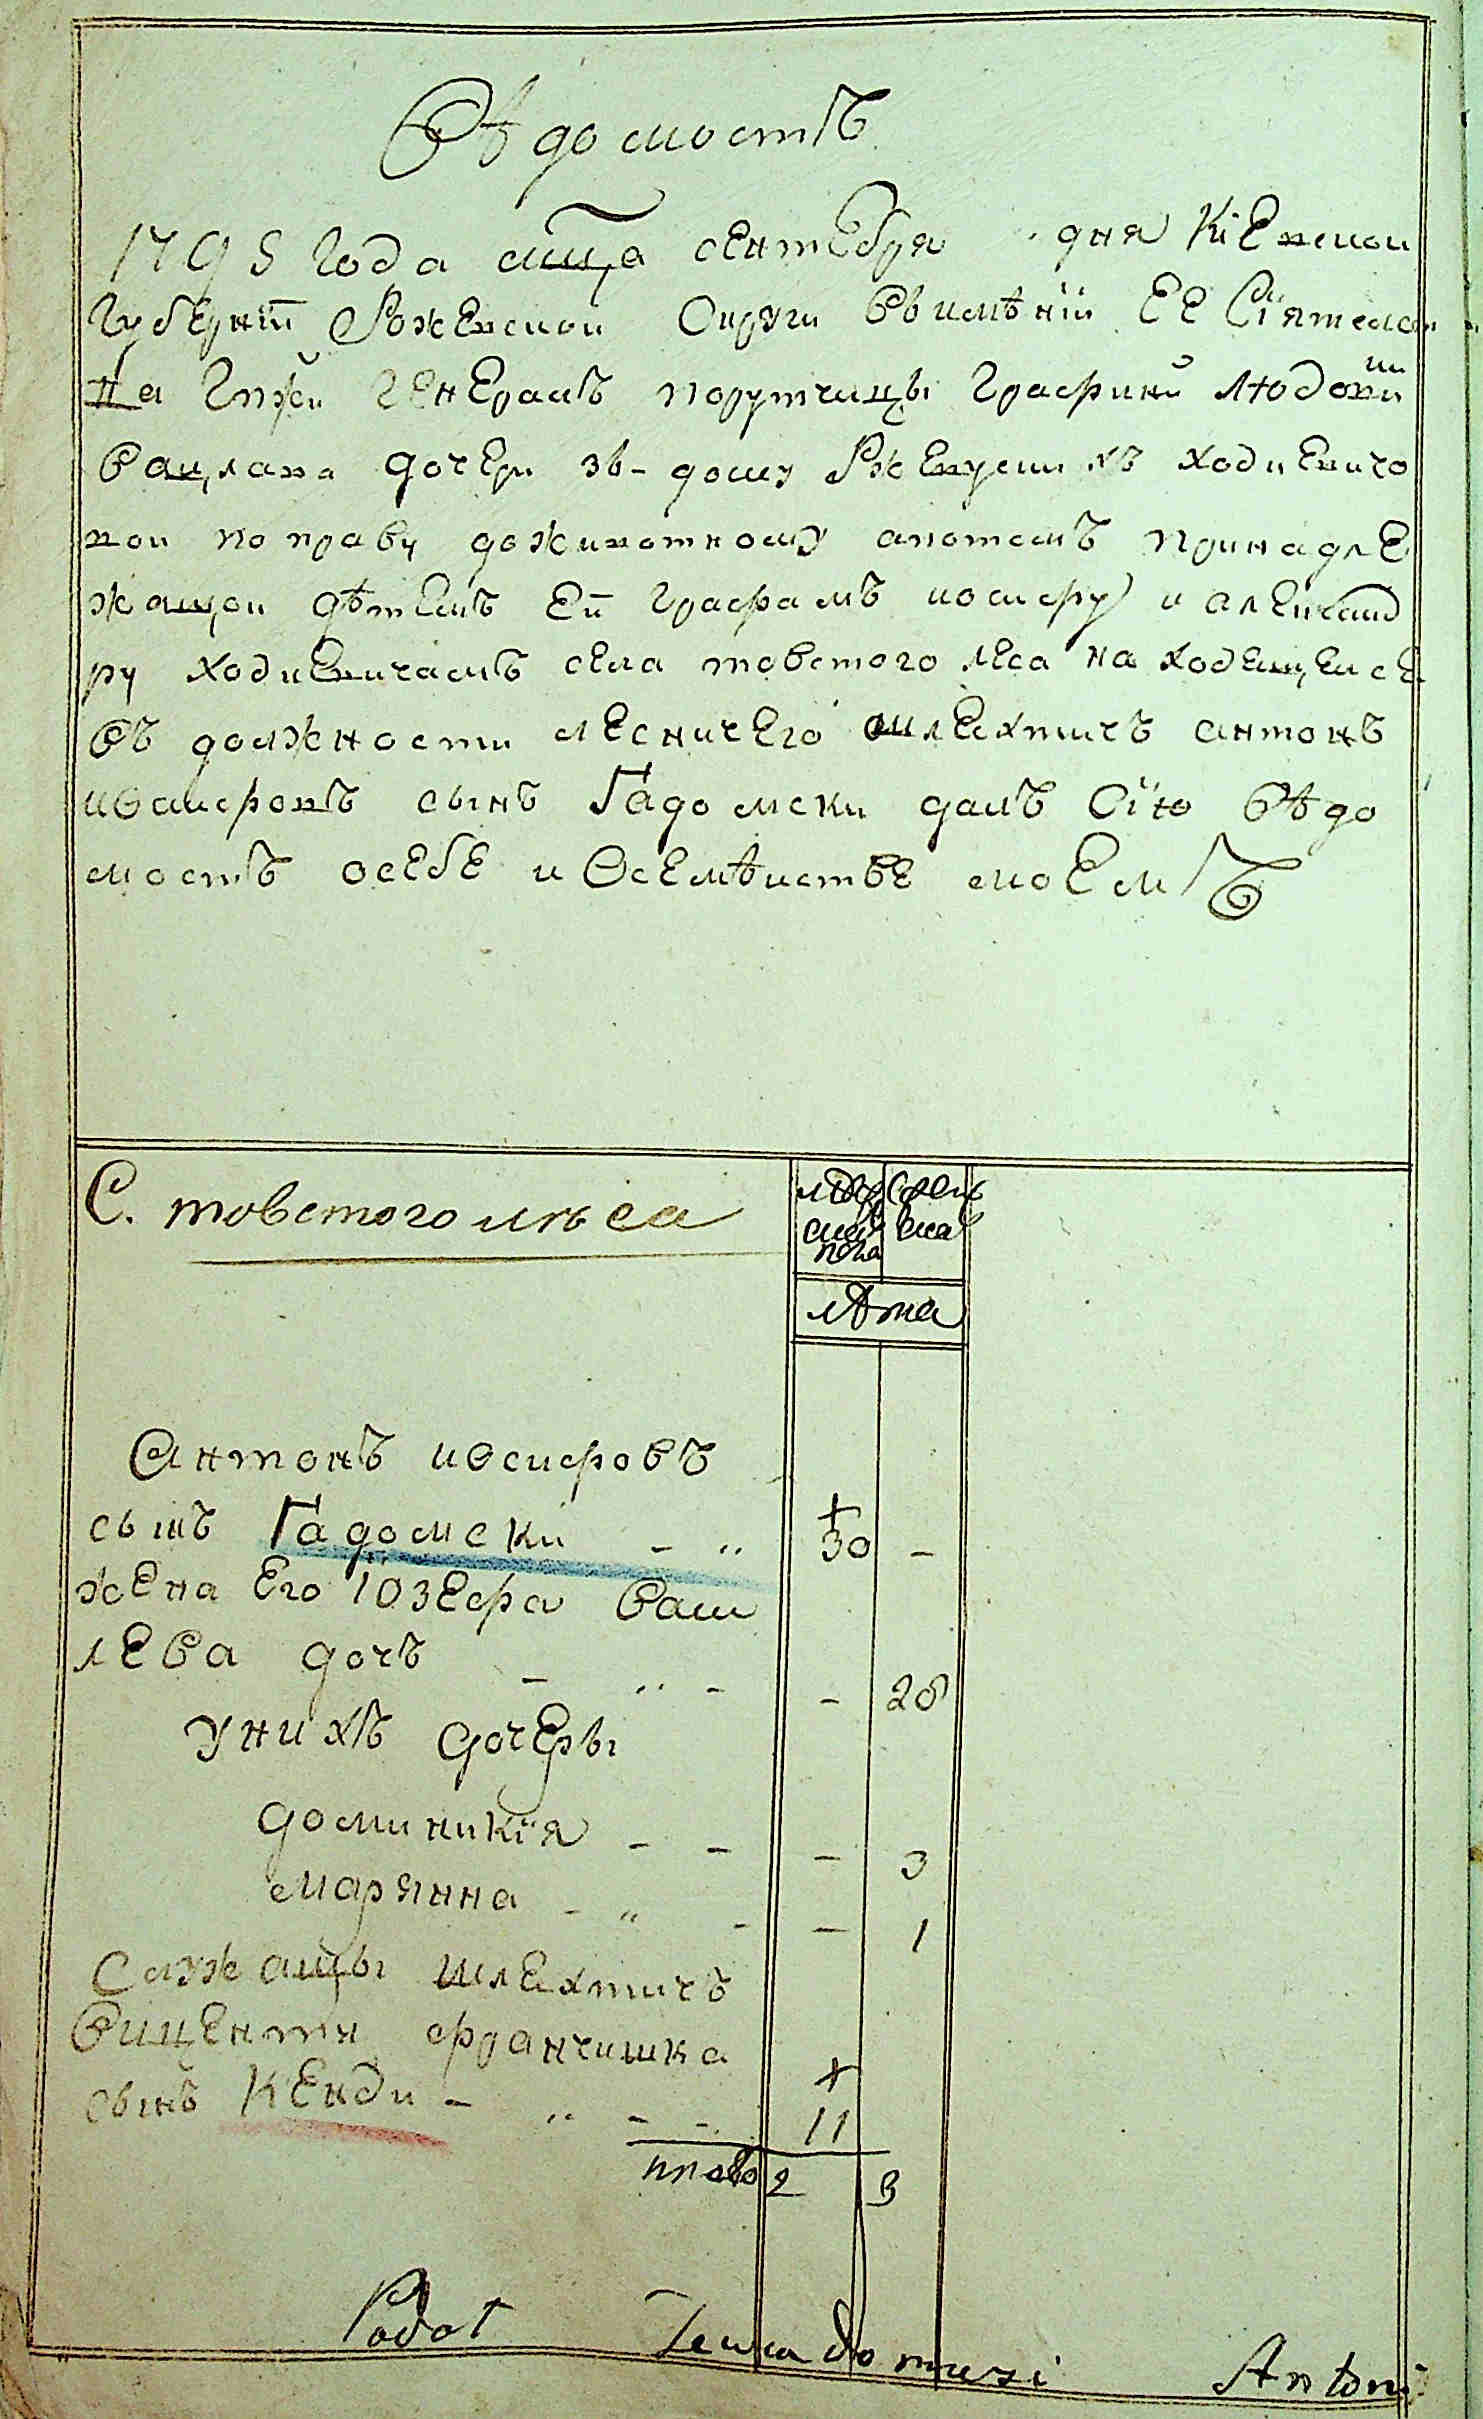 Вѣдомостъ
1795 года мцa сентебря дня Кіевской
Губерніи Овжевской Округи Въ имѣніи ЕЕ Сіятелс
тва Гпжи Генералъ порутчицы Графини Людови
ки
Вацлава дочери зъ-дому Ржевускихъ ходкевичо
вои по праву доживотному апотомъ принадле
жащои дѣтемъ Ей Графамъ иосифу и александ
ру ходкевичамъ села товстого леса находещеисе
Въ должности лесничего шлехтичъ антонъ
сынъ Гадомски далъ Сію Вѣдо
мостъ осебе и Осемѣистве моемъ
С. товстого лѣса
мужеск женс
ска
пола
лѣта
Антонъ иосифовъ
сынъ Гадомски - „ 30 -
жена Его Юзефа Васи
лева дочъ - „ - - 28
Унихъ дочеры
доминикія - - - 3
марянна - „ - - 1
Служащы шлехтичъ
Виценты францишка
сынъ Кенди - „ - - 11
итого 2 3
Podał Antoni